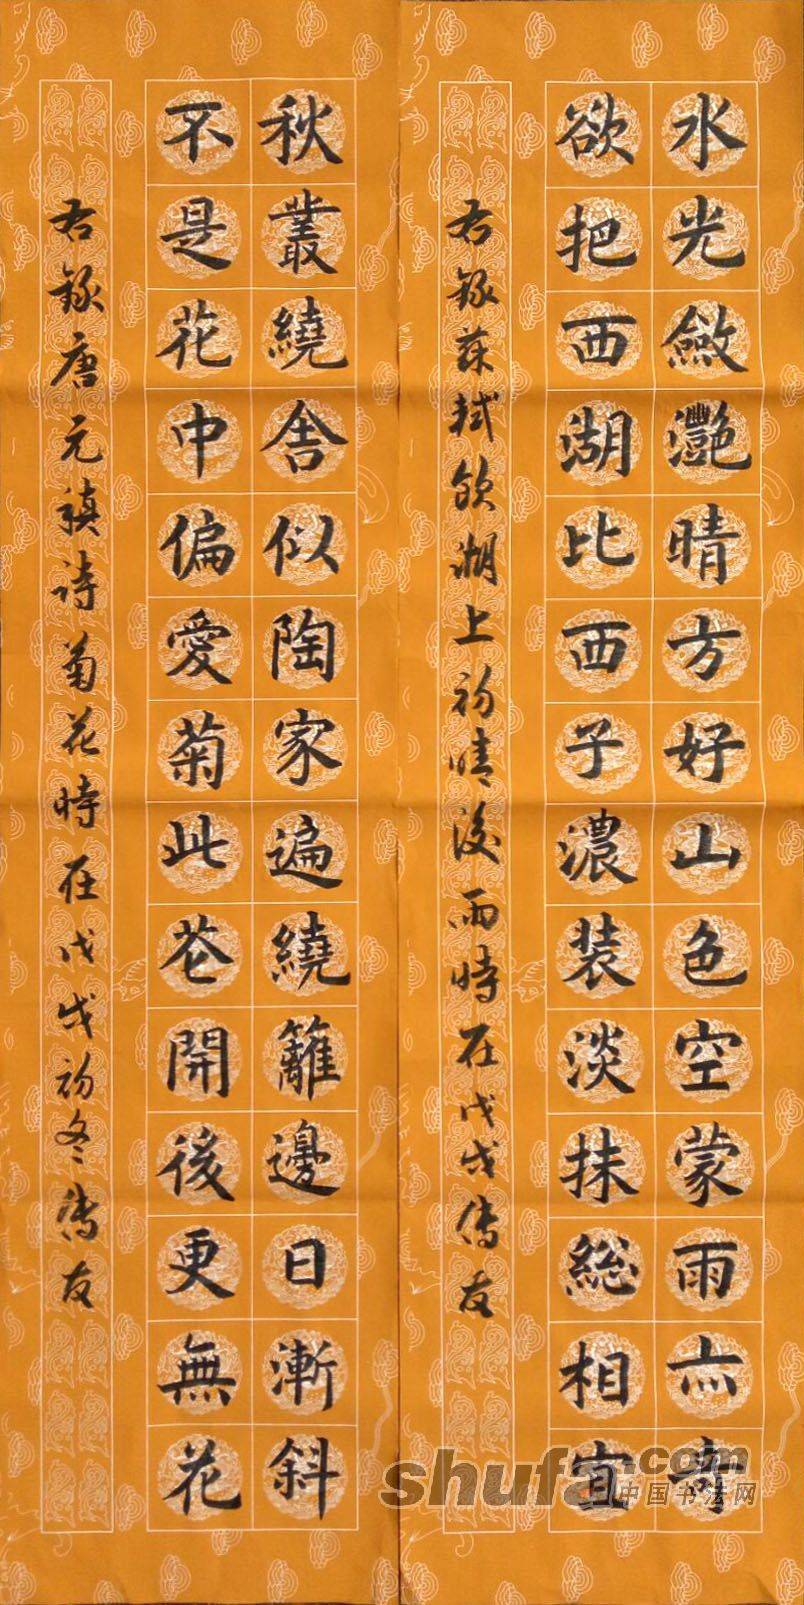 水光斂灧晴方好山色空蒙雨亦奇
欲把西湖比西子濃装淡抹総相宜
右錄蘇軾飲湖上初晴後雨時在戊戌傳友
秋叢繞舍似陶家遍繞籬邊日漸斜
不是花中偏愛菊此花開後更無花
右錄唐元稹詩菊花時在戊戌初冬傳友
shufa.com
中国书法网